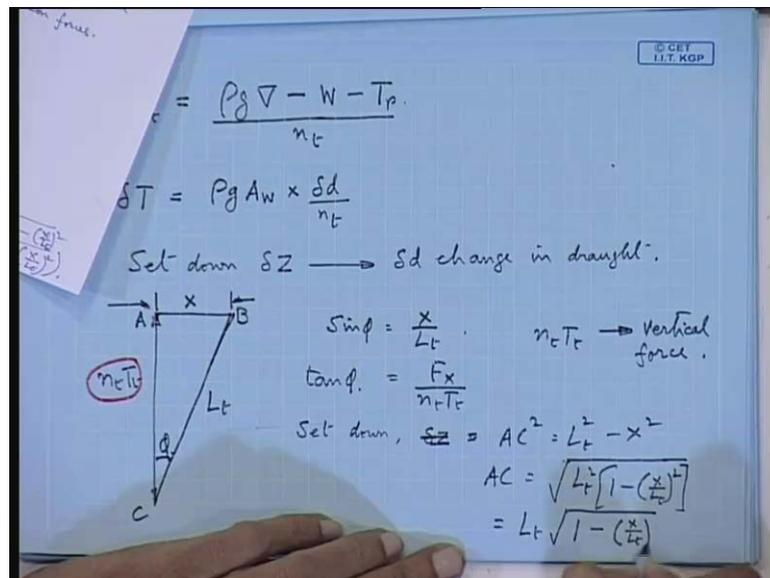 on force.
© CET
I.I.T. KGP
= ρg∇ - W - Tp.
nt
δT = ρg Aw × δd
nt
- (x/Lt)²
(x/Lt)²]
Set down δZ → δd change in draught.
x
A B
sinφ = x/Lt .
ntTt → vertical
force.
ntTt
Lt
tanφ. = Fx/ntTt
Set down, δz = AC² = Lt² - x²
φ
AC = √Lt²[1-(x/Lt)²]
C
= Lt √1-(x/Lt)